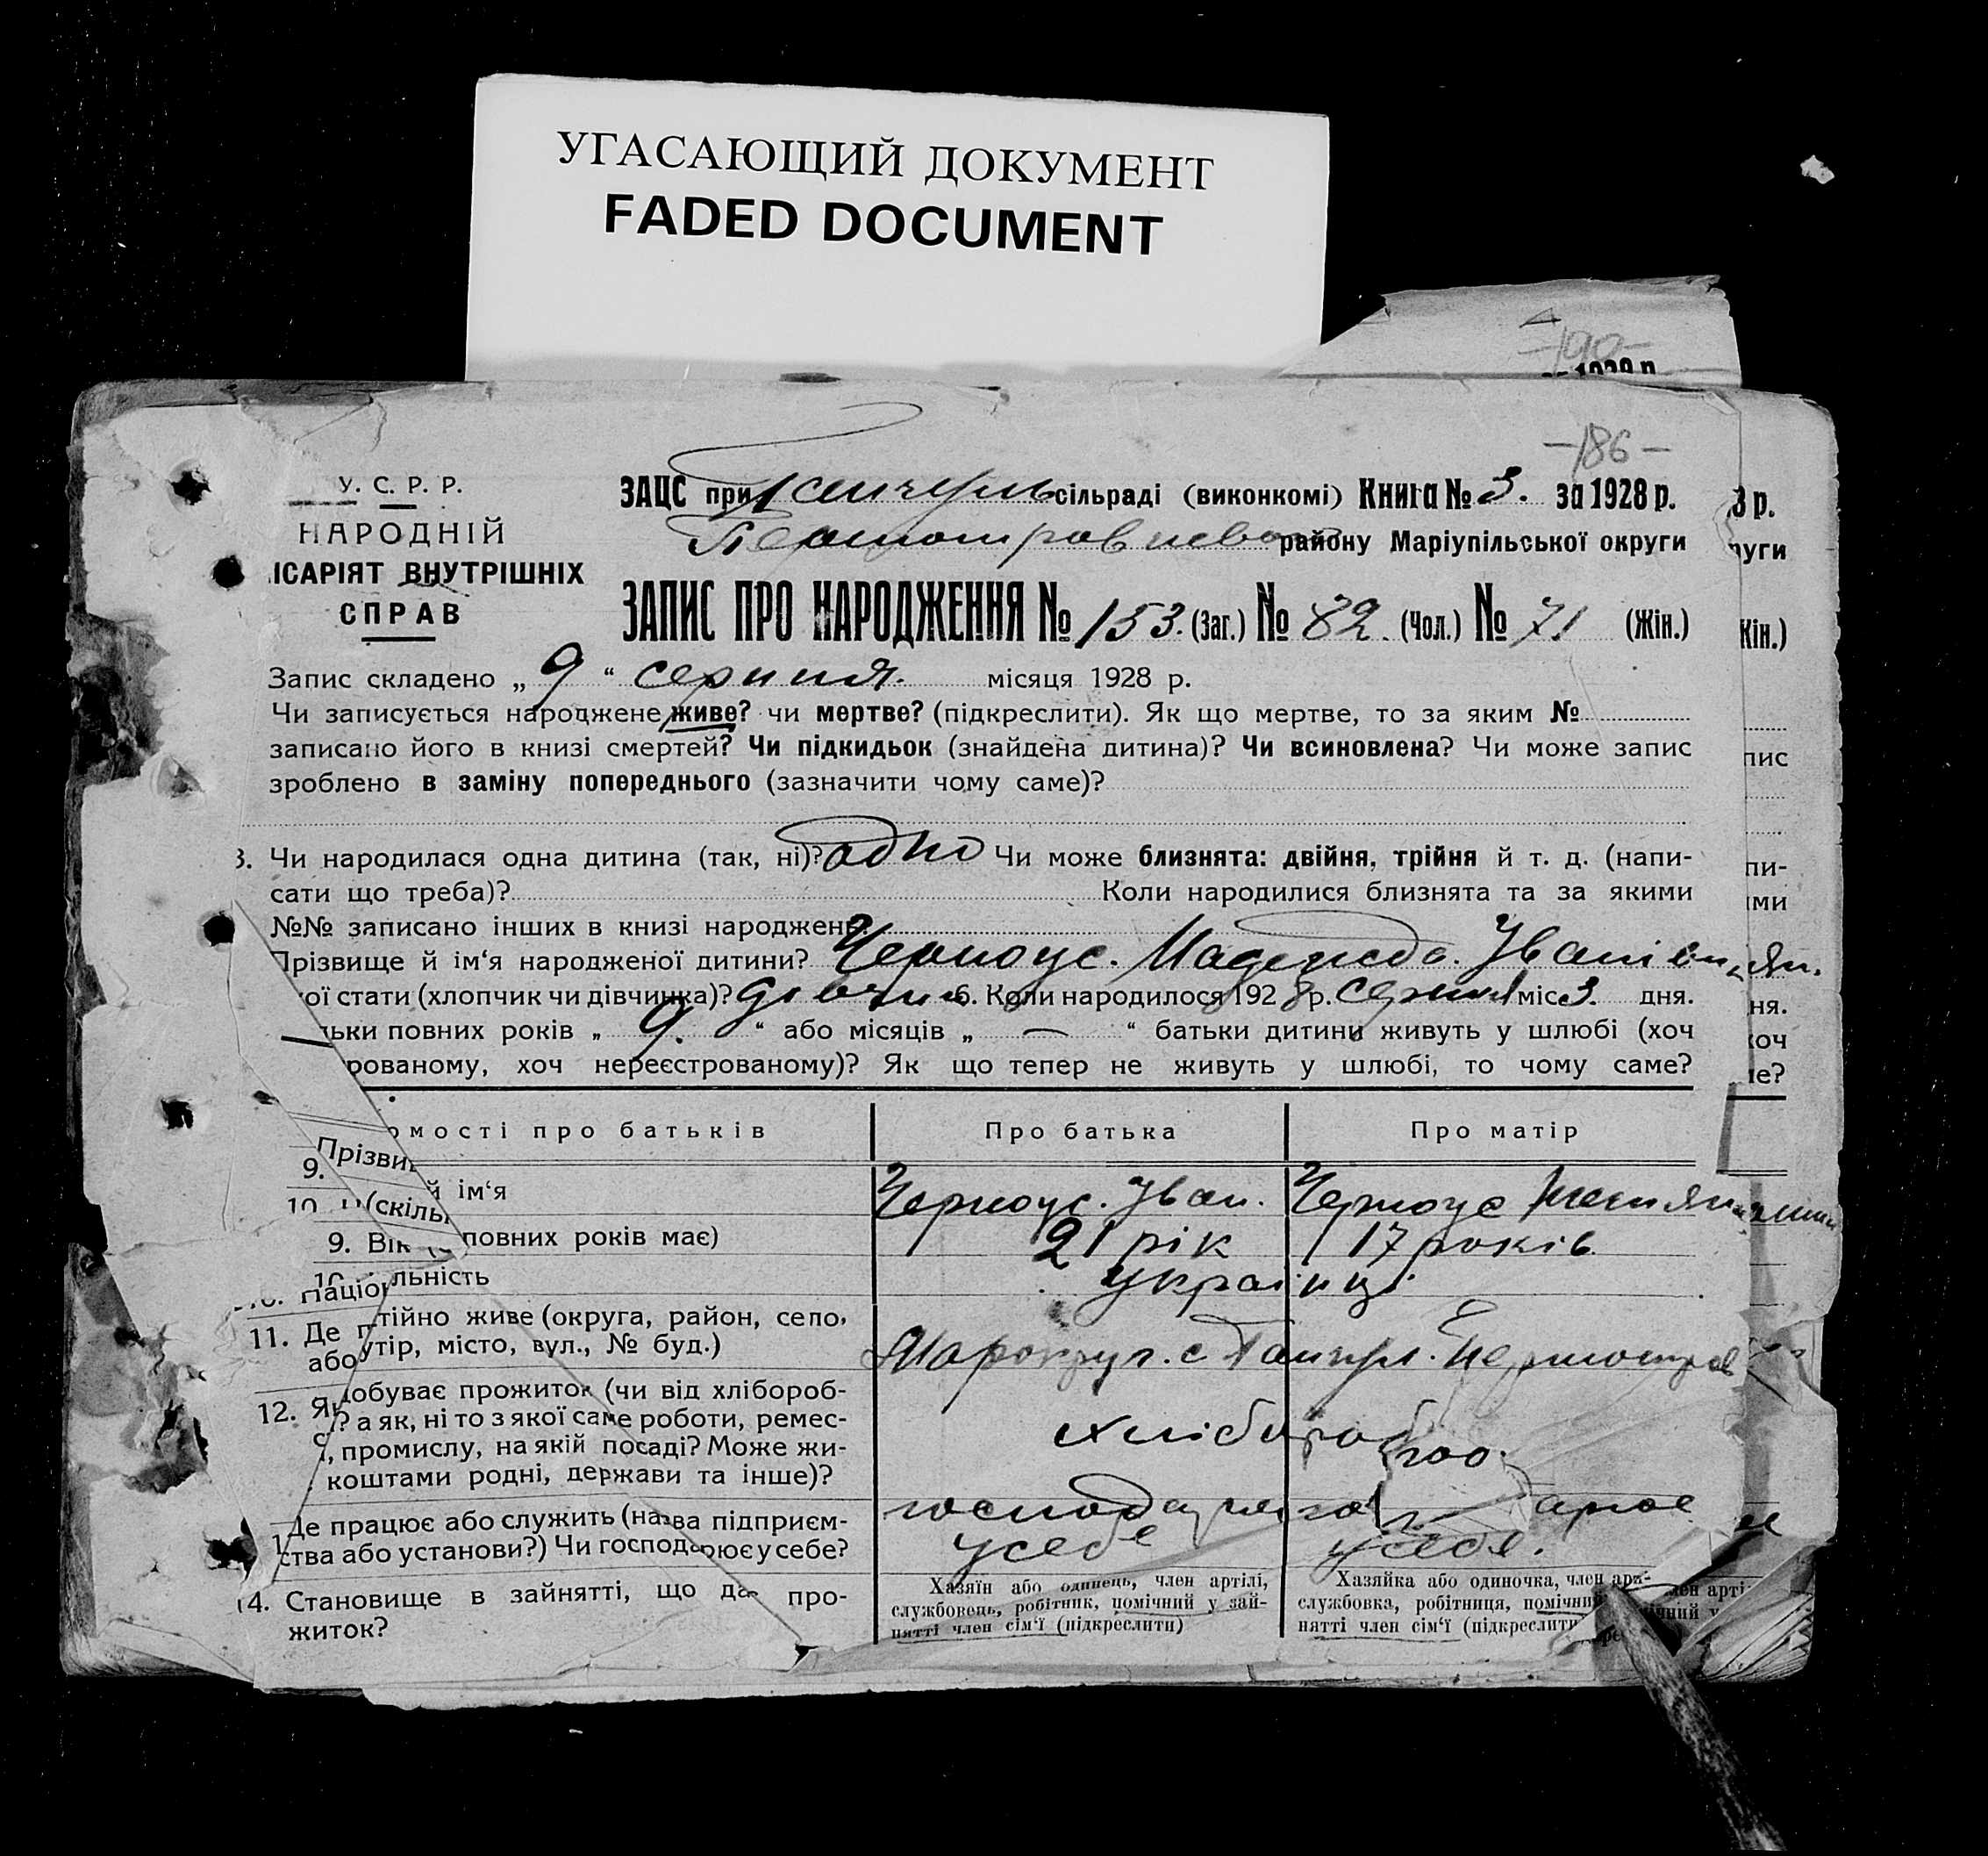 УГАСАЮЩИЙ ДОКУМЕНТ
FADED DOCUMENT
-190-
-186-
У. С. Р. Р.
НАРОДНІЙ
ІСАРІЯТ ВНУТРІШНІХ
СПРАВ
ЗАЦС при сільраді (виконкомі) Книга № 3. за 1928 р.
району Маріупільської округи
ЗАПИС ПРО НАРОДЖЕННЯ № 153. (Заг.) № 82. (Чол.) № 71 (Жін.)
Запис складено „ 9 “ серпня. місяця 1928 р.
Чи записується народжене живе? чи мертве? (підкреслити). Як що мертве, то за яким №
записано його в книзі смертей? Чи підкидьок (знайдена дитина)? Чи всиновлена? Чи може запис
зроблено в заміну попереднього (зазначити чому саме)?
3. Чи народилася одна дитина (так, ні)? одно Чи може близнята: двійня, трійня й т. д. (напи-
сати що треба)? Коли народилися близнята та за якими
№№ записано інших в книзі народжень.
Прізвище й ім‘я народженої дитини? Черноус. Надежда. Іванівна
ої стати (хлопчик чи дівчинка)? дівчин 6. Коли народилося 1928 р. серпня міс. 3. дня.
льки повних років „ 9. “ або місяців „ — “ батьки дитини живуть у шлюбі (хоч
рованому, хоч нереєстрованому)? Як що тепер не живуть у шлюбі, то чому саме?
омості про батьків Про батька Про матір
9. Прізви й ім‘я Черноус. Іван. Черноус
10. (скіль
9. Вік повних років має) 21 рік 17 років
10. Націо льність українці
11. Де п тійно живе (округа, район, село,
або утір, місто, вул., № буд.) Марокруг. с
12. Я обуває прожиток (чи від хлібороб-
? а як, ні то з якої саме роботи, ремес-
, промислу, на якій посаді? Може жи-
коштами родні, держави та інше)?
1 Де працює або служить (назва підприєм-
ства або установи?) Чи господарює у себе? у себе у себе.
14. Становище в зайнятті, що дає про-
житок?
Хазяїн або одинець, член артілі,
службовець, робітник, помічний у зай-
нятті член сім‘ї (підкреслити)
Хазяйка або одиночка, член арті-
службовка, робітниця, помічний
нятті член сім‘ї (підкреслити